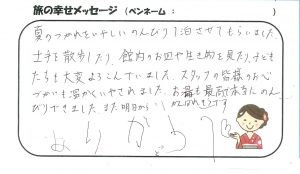 旅の幸せメッセージ (ペンネーム: )
夏のつかれをいやしいのんびり1泊させてもらいました
土手を散歩したり、館内のお皿や生き物を見たり、子ども
たちも大変よろこんでいました。スタッフの皆様のお心
づかいも温かくいやされました。お湯も最高で本当にのん
びりできました。また明日からがんばれそうです
ありがとう